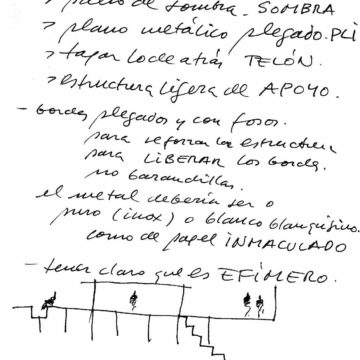 > plano de sombra. SOMBRA
> plano metálico plegado. PLI
> tapar lo de atrás TELÓN.
> estructura ligera de APOYO.
- bordes plegados y con foros.
para reforzar la estructura
para LIBERAR los bordes.
no barandillas.
el metal debería ser o
puro (inox) o blanco blanquísimo.
como de papel INMACULADO
- tener claro que es EFÍMERO.